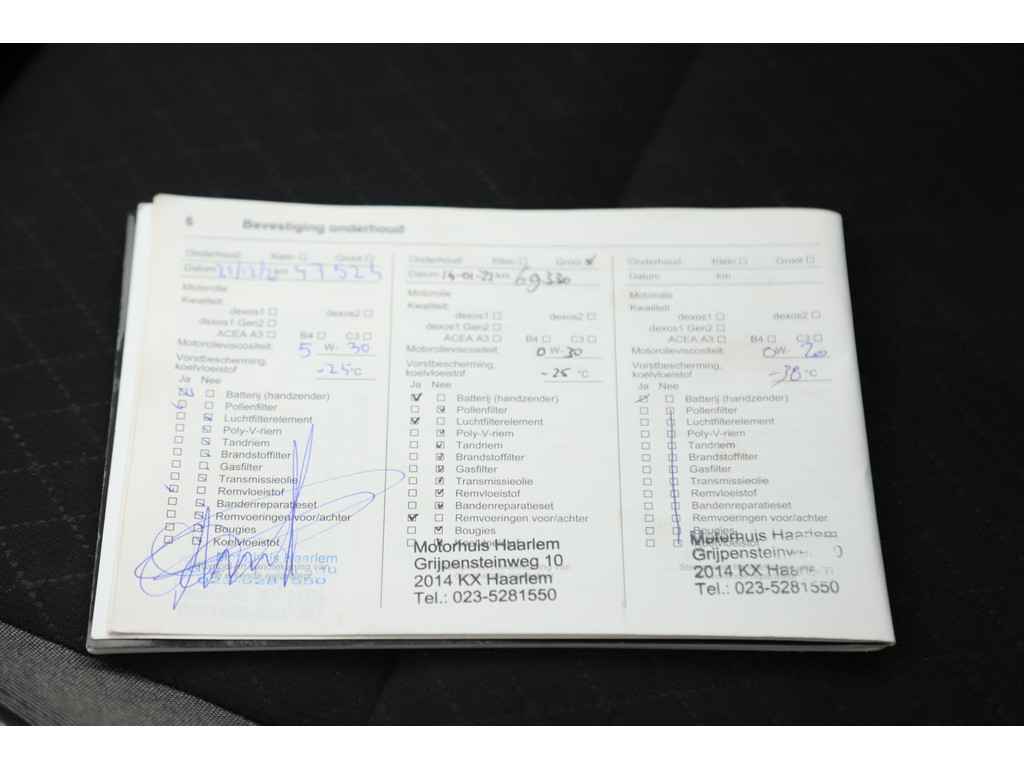 6 Bevestiging onderhoud
Onderhoud Klein Groot
Datum km 47524
Motorolie
Kwaliteit:
dexos1 dexos2
dexos1 Gen2
ACEA A3 B4 C3
Motorolieviscositeit: 5 W- 30
Vorstbescherming,
koelvloeistof -25 °C
Ja Nee
Batterij (handzender)
Pollenfilter
Luchtfilterelement
Poly-V-riem
Tandriem
Brandstoffilter
Gasfilter
Transmissieolie
Remvloeistof
Bandenreparatieset
Remvoeringen voor/achter
Bougies
Koelvloeistof
Haarlem
023-5281550
Onderhoud Klein Groot
Datum 14-01-22 km 69330
Motorolie
Kwaliteit:
dexos1 dexos2
dexos1 Gen2
ACEA A3 B4 C3
Motorolieviscositeit: 0 W- 30
Vorstbescherming,
koelvloeistof -25 °C
Ja Nee
Batterij (handzender)
Pollenfilter
Luchtfilterelement
Poly-V-riem
Tandriem
Brandstoffilter
Gasfilter
Transmissieolie
Remvloeistof
Bandenreparatieset
Remvoeringen voor/achter
Bougies
Motorhuis Haarlem
Grijpensteinweg 10
2014 KX Haarlem
Tel.: 023-5281550
Onderhoud Klein Groot
Datum km
Motorolie
Kwaliteit:
dexos1 dexos2
dexos1 Gen2
ACEA A3 B4 C3
Motorolieviscositeit: 0 W- 20
Vorstbescherming,
koelvloeistof -38 °C
Ja Nee
Batterij (handzender)
Pollenfilter
Luchtfilterelement
Poly-V-riem
Tandriem
Brandstoffilter
Gasfilter
Transmissieolie
Remvloeistof
Bandenreparatieset
Remvoeringen voor/achter
Bougies
Koelvloeistof
Motorhuis Haarlem
Grijpensteinw
2014 KX Haarle
Tel.: 023-5281550